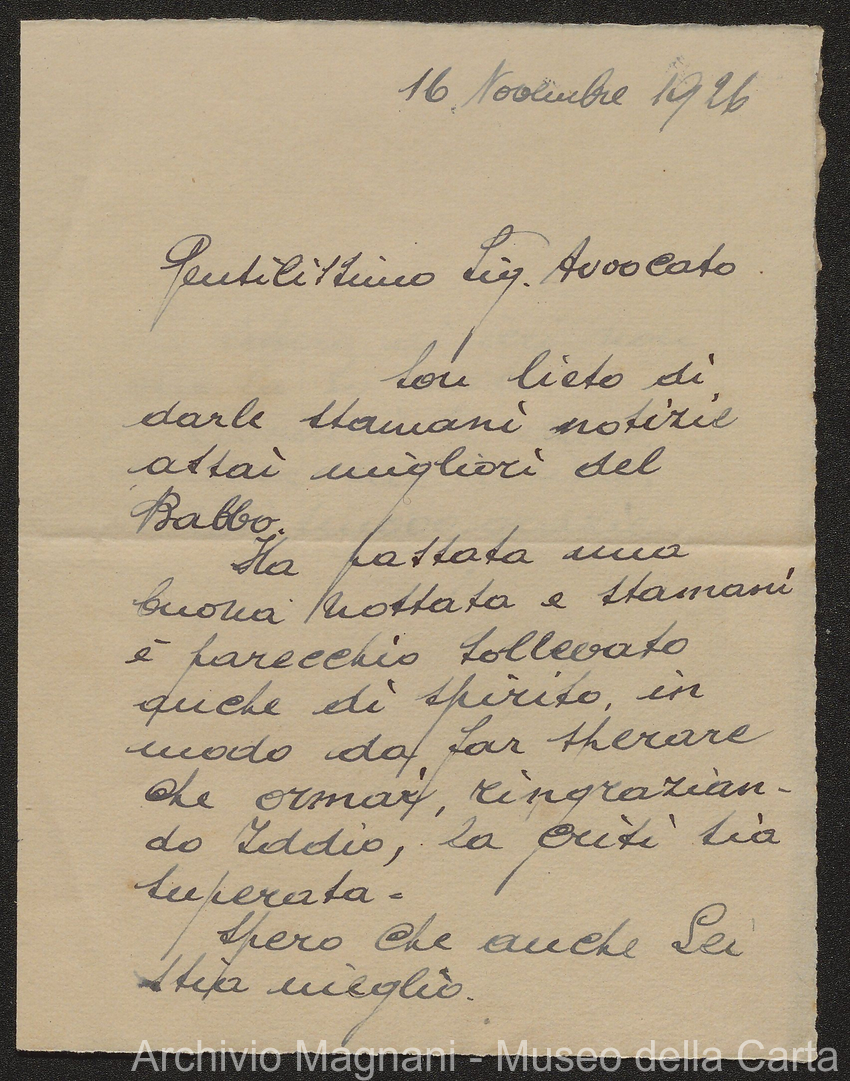 16 Novembre 1926
Gentilissimo Sig. Avvocato
Son lieto di
darle stamani notizie
assai migliori del
Babbo.
Ha passata una
buona nottata e stamani
è parecchio sollevato
anche di spirito, in
modo da far sperare
che ormai, ringrazian-
do Iddio, la crisi sia
superata.
Spero che anche Lei
stia meglio.
Archivio Magnani - Museo della Carta